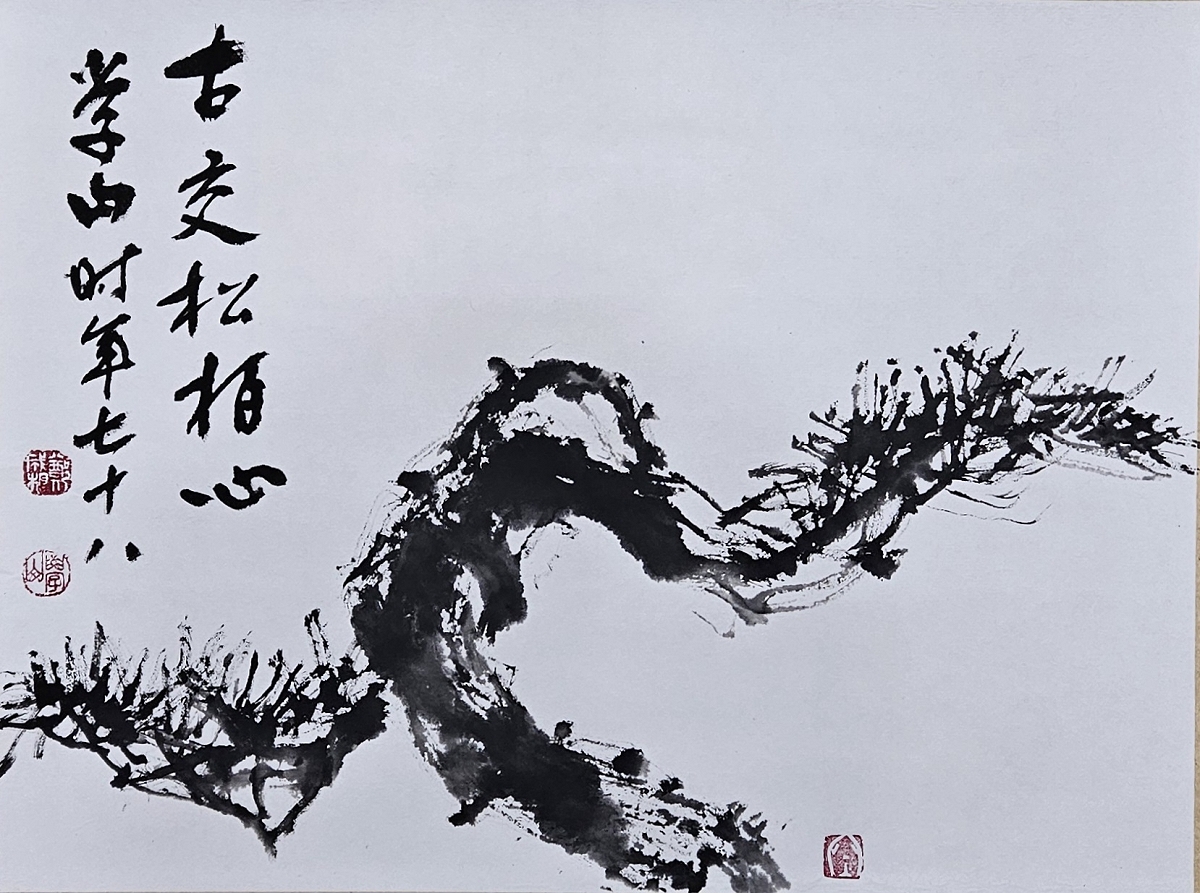 古交松柏心
学山时年七十八
學山